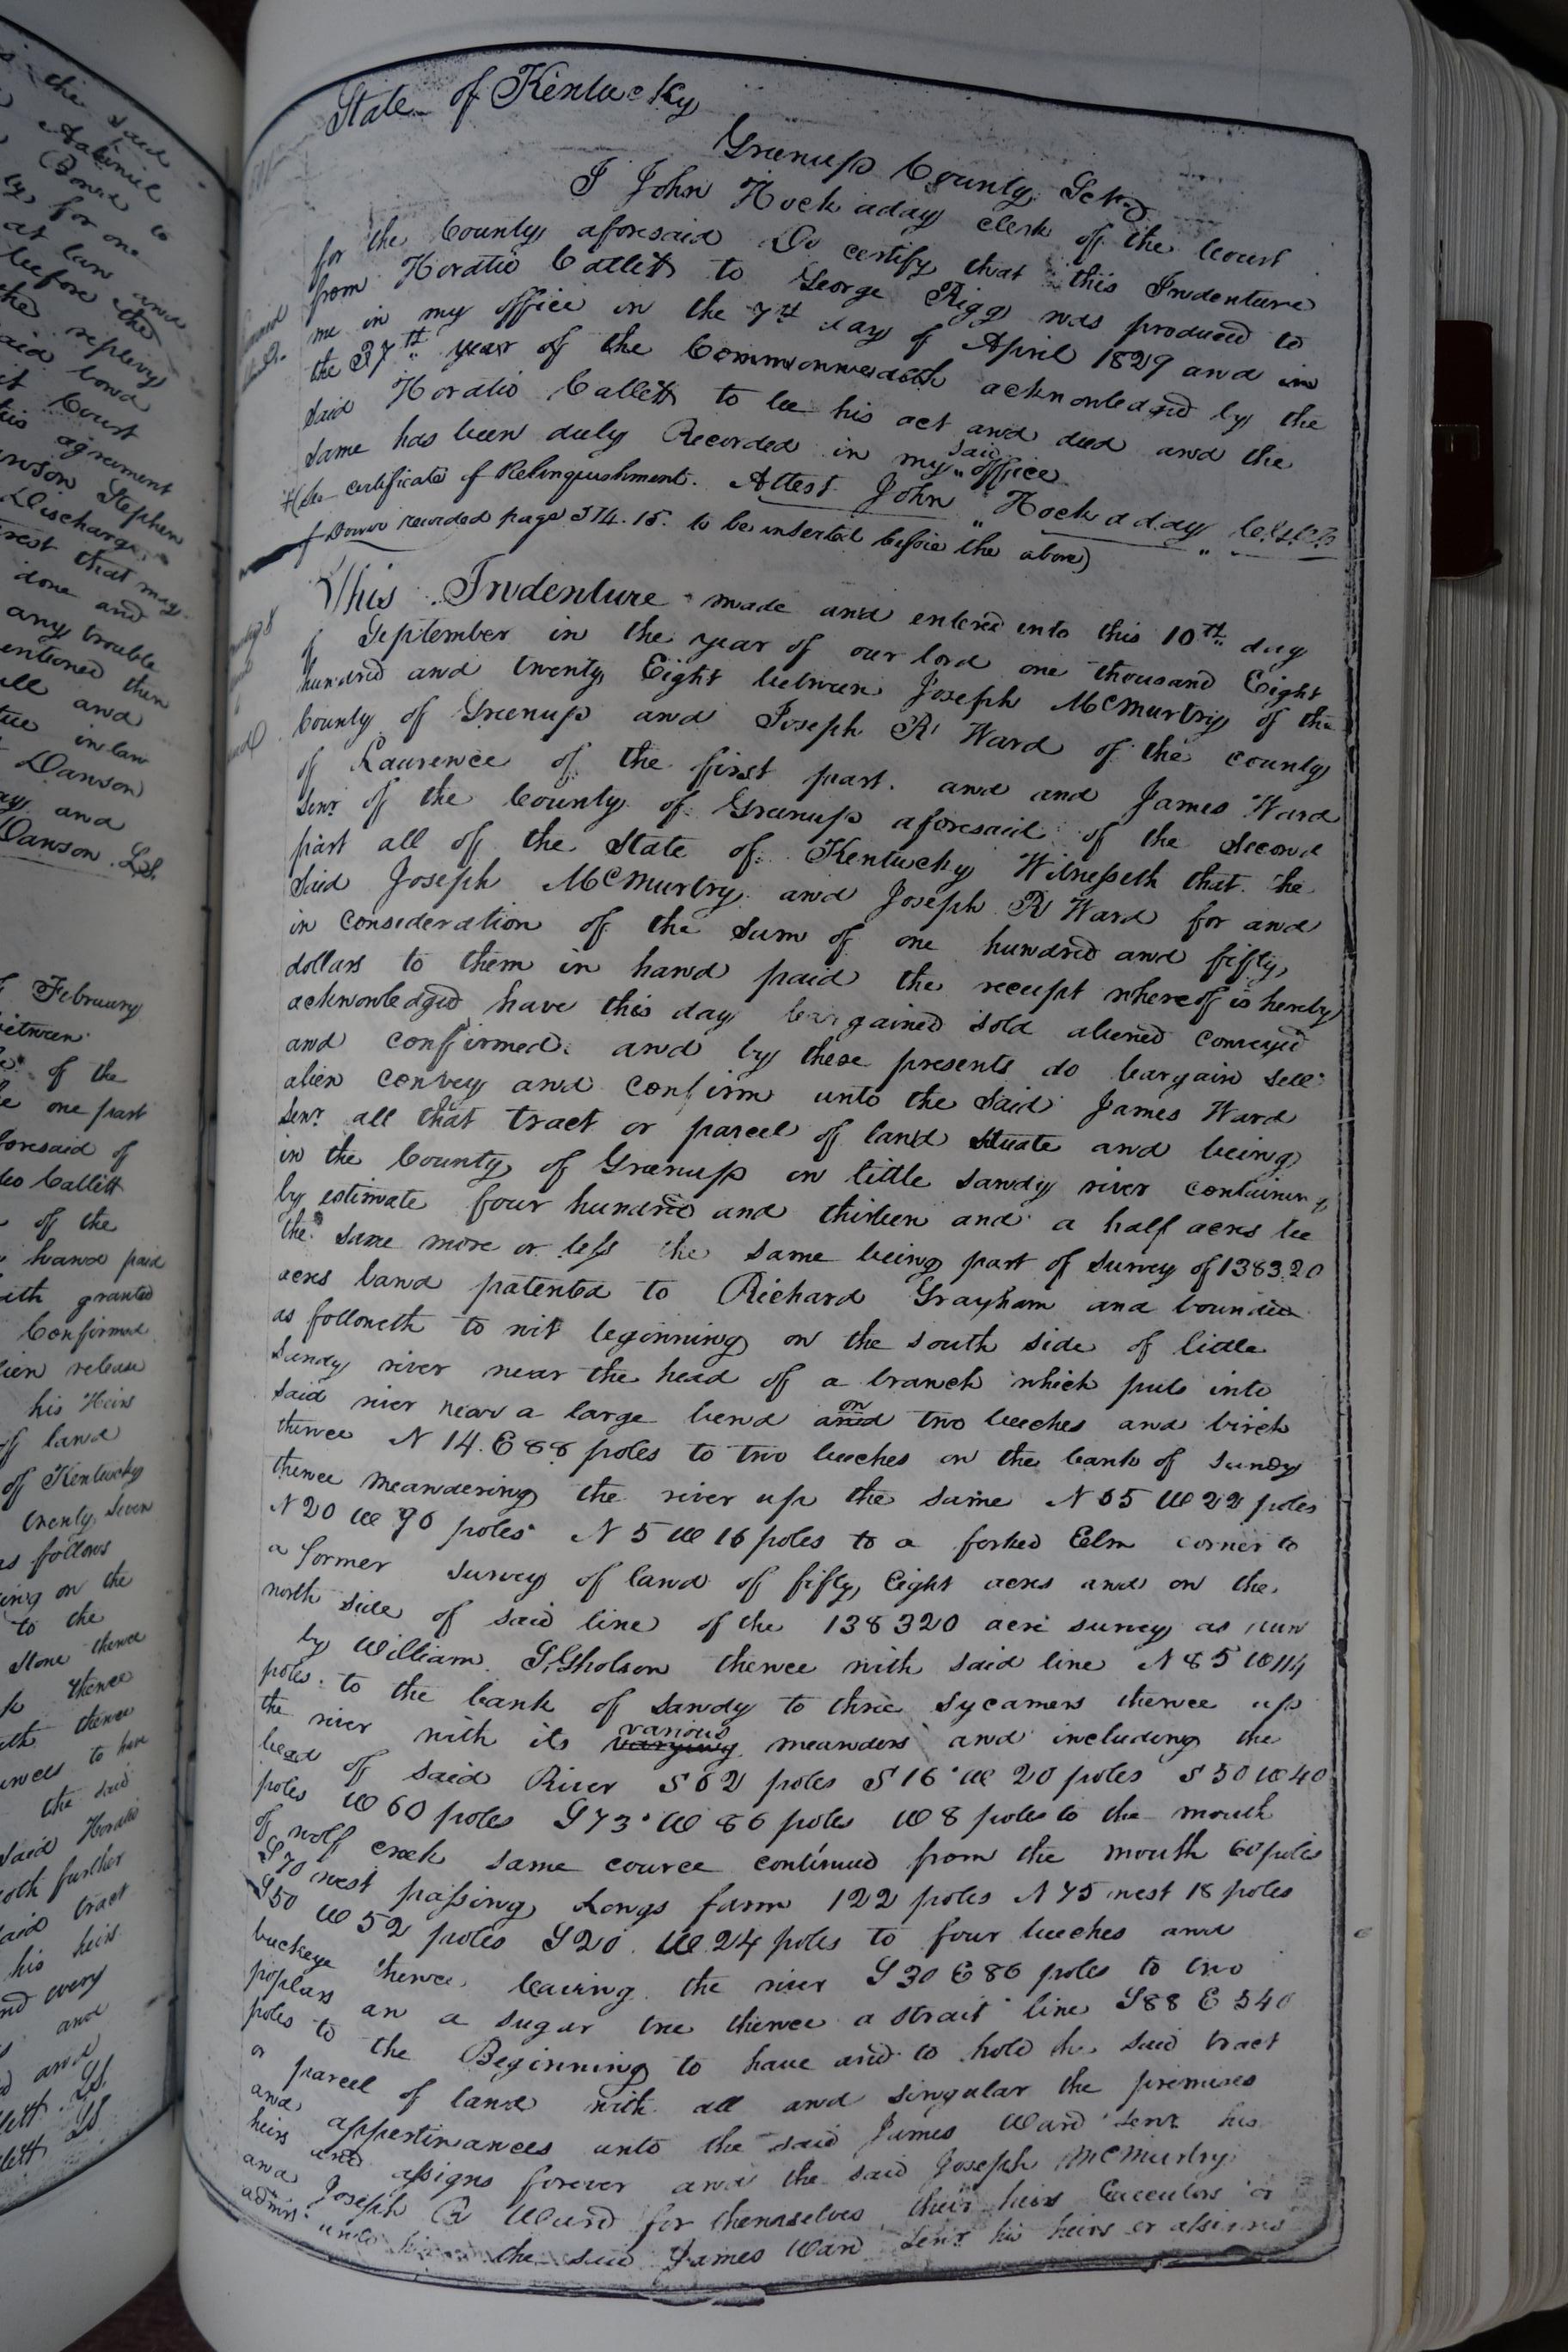 the said
for one
at law and
before the
the replevy
said bond
Court
this agreement
Stephen
Discharge
rest that may
done and
any trouble
entioned then
all and
tue in law
Dawson
and
Dawson L.S.
February
between
of the
one part
foresaid of
Catlett
of the
hand paid
granted
Confirmed
lien release
his Heirs
of land
of Kentucky
twenty Seven
as follows
ing on the
to the
Stone thence
thence
thence
to have
the said
Said Horatio
forth further
said tract
his heirs
and every
and
and
lett LS.
lett LS
State of Kentucky
Greenup County Sct.
I John Hockaday clerk of the Court
for the County aforesaid Do certify that this Indenture
from Horatio Catlett to George Rigg was produced to
me in my office in the 7th day of April 1829 and in
the 37th year of the Commonwealth acknowledged by the
said Horatio Catlett to be his act and deed and the
same has been duly Recorded in my said office
(See certificate of Relinquishment. Attest John Hockaday C.G.C.C.
of Dower recorded page 374.15. to be inserted before the above)
This Indenture made and entered into this 10th day
of September in the year of our lord one thousand Eight
hundred and twenty Eight between Joseph McMurtry of the
County of Greenup and Joseph R Ward of the county
of Laurence of the first part. and and James Ward
Senr of the County of Greenup aforesaid of the second
part all of the State of Kentucky Witnesseth that the
said Joseph McMurtry and Joseph R Ward for and
in consideration of the sum of one hundred and fifty
dollars to them in hand paid the receipt whereof is hereby
acknowledged have this day bargained sold aliened conveyed
and confirmed. and by these presents do bargain sell
alien convey and confirm unto the said James Ward
Senr all that tract or parcel of land situate and being
in the County of Greenup on little sandy river containing
by estimate four hundred and thirteen and a half acres be
the same more or less the same being part of survey of 138320
acres land patented to Richard Grayham and bounded
as followeth to wit beginning on the south side of little
sandy river near the head of a branch which puts into
said river near a large bend and on two beeches and birch
thence N 14. E 88 poles to two beeches on the bank of sandy
thence meandering the river up the same N 65 W 22 poles
N 20 W 96 poles N 5 W 16 poles to a forked Elm corner to
a former survey of land of fifty Eight acres and on the
north side of said line of the 138320 acre survey as run
by William S. Gholson thence with said line N 85 W 114
poles to the bank of sandy to three sycamers thence up
the river with its varying various meanders and including the
bead of said River S 62 poles S 16° W 20 poles S 50 W 40
poles W 60 poles S 73° W 86 poles W 8 poles to the mouth
of wolf creek same cource continued from the mouth 60 poles
S 70 west passing Longs farm 122 poles N 75 west 18 poles
S 50 W 52 poles S 20. W 24 poles to four beeches and
buckeye thence leaving the river S 30 E 86 poles to two
poplars an a sugar tree thence a strait line S 88 E 540
poles to the Beginning to have and to hold the said tract
or parcel of land with all and singular the premises
and appertinances unto the said James Ward Senr his
heirs and assigns forever and the said Joseph McMurtry
and Joseph R Ward for themselves their heirs Executors or
admrs the said James Ward Senr his heirs or assigns